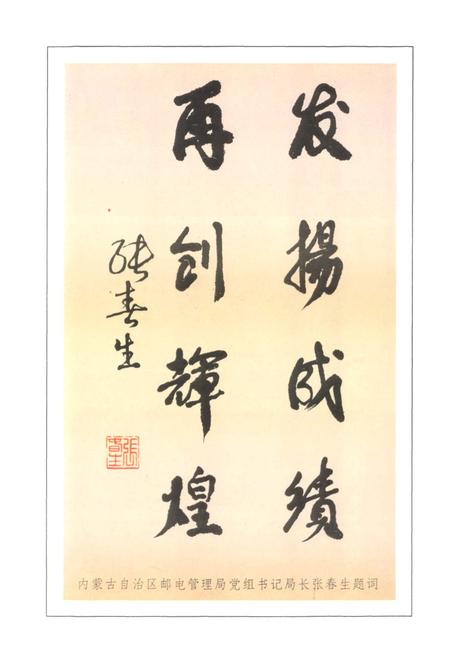 发揚成绩
再创輝煌
张春生
張春生
内蒙古自治区邮电管理局党组书记局长张春生题词